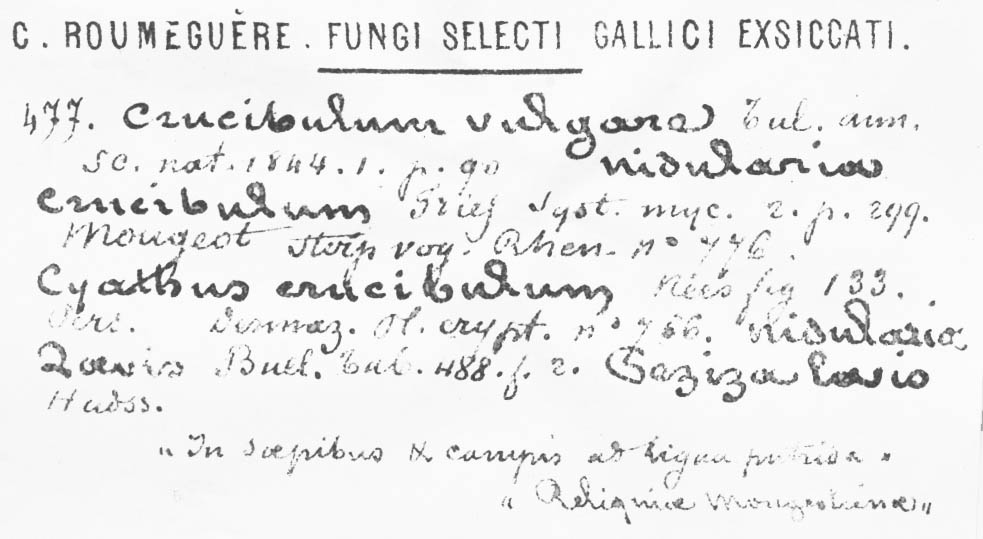 C. ROUMĚGUĚRE. FUNGI SELECTI GALLICI EXSICCATI.
477. Crucibulum vulgare Tul. ann.
Sc. nat. 1844. 1. p. 90 Nidularia
Crucibulum Fries Syst. myc. 2. p. 299.
Mougeot Stirp vog. Rhen. n° 776.
Cyathus crucibulum Nees fig 133.
Pers. Desmaz. Pl. crypt. n° 766. Nidularia
Laevis Bull. Tab. 488. f. 2. Peziza lævis
Hudss.
"In sæpibus & campis ad ligna putrida"
"Reliquiæ Mougeotianæ"